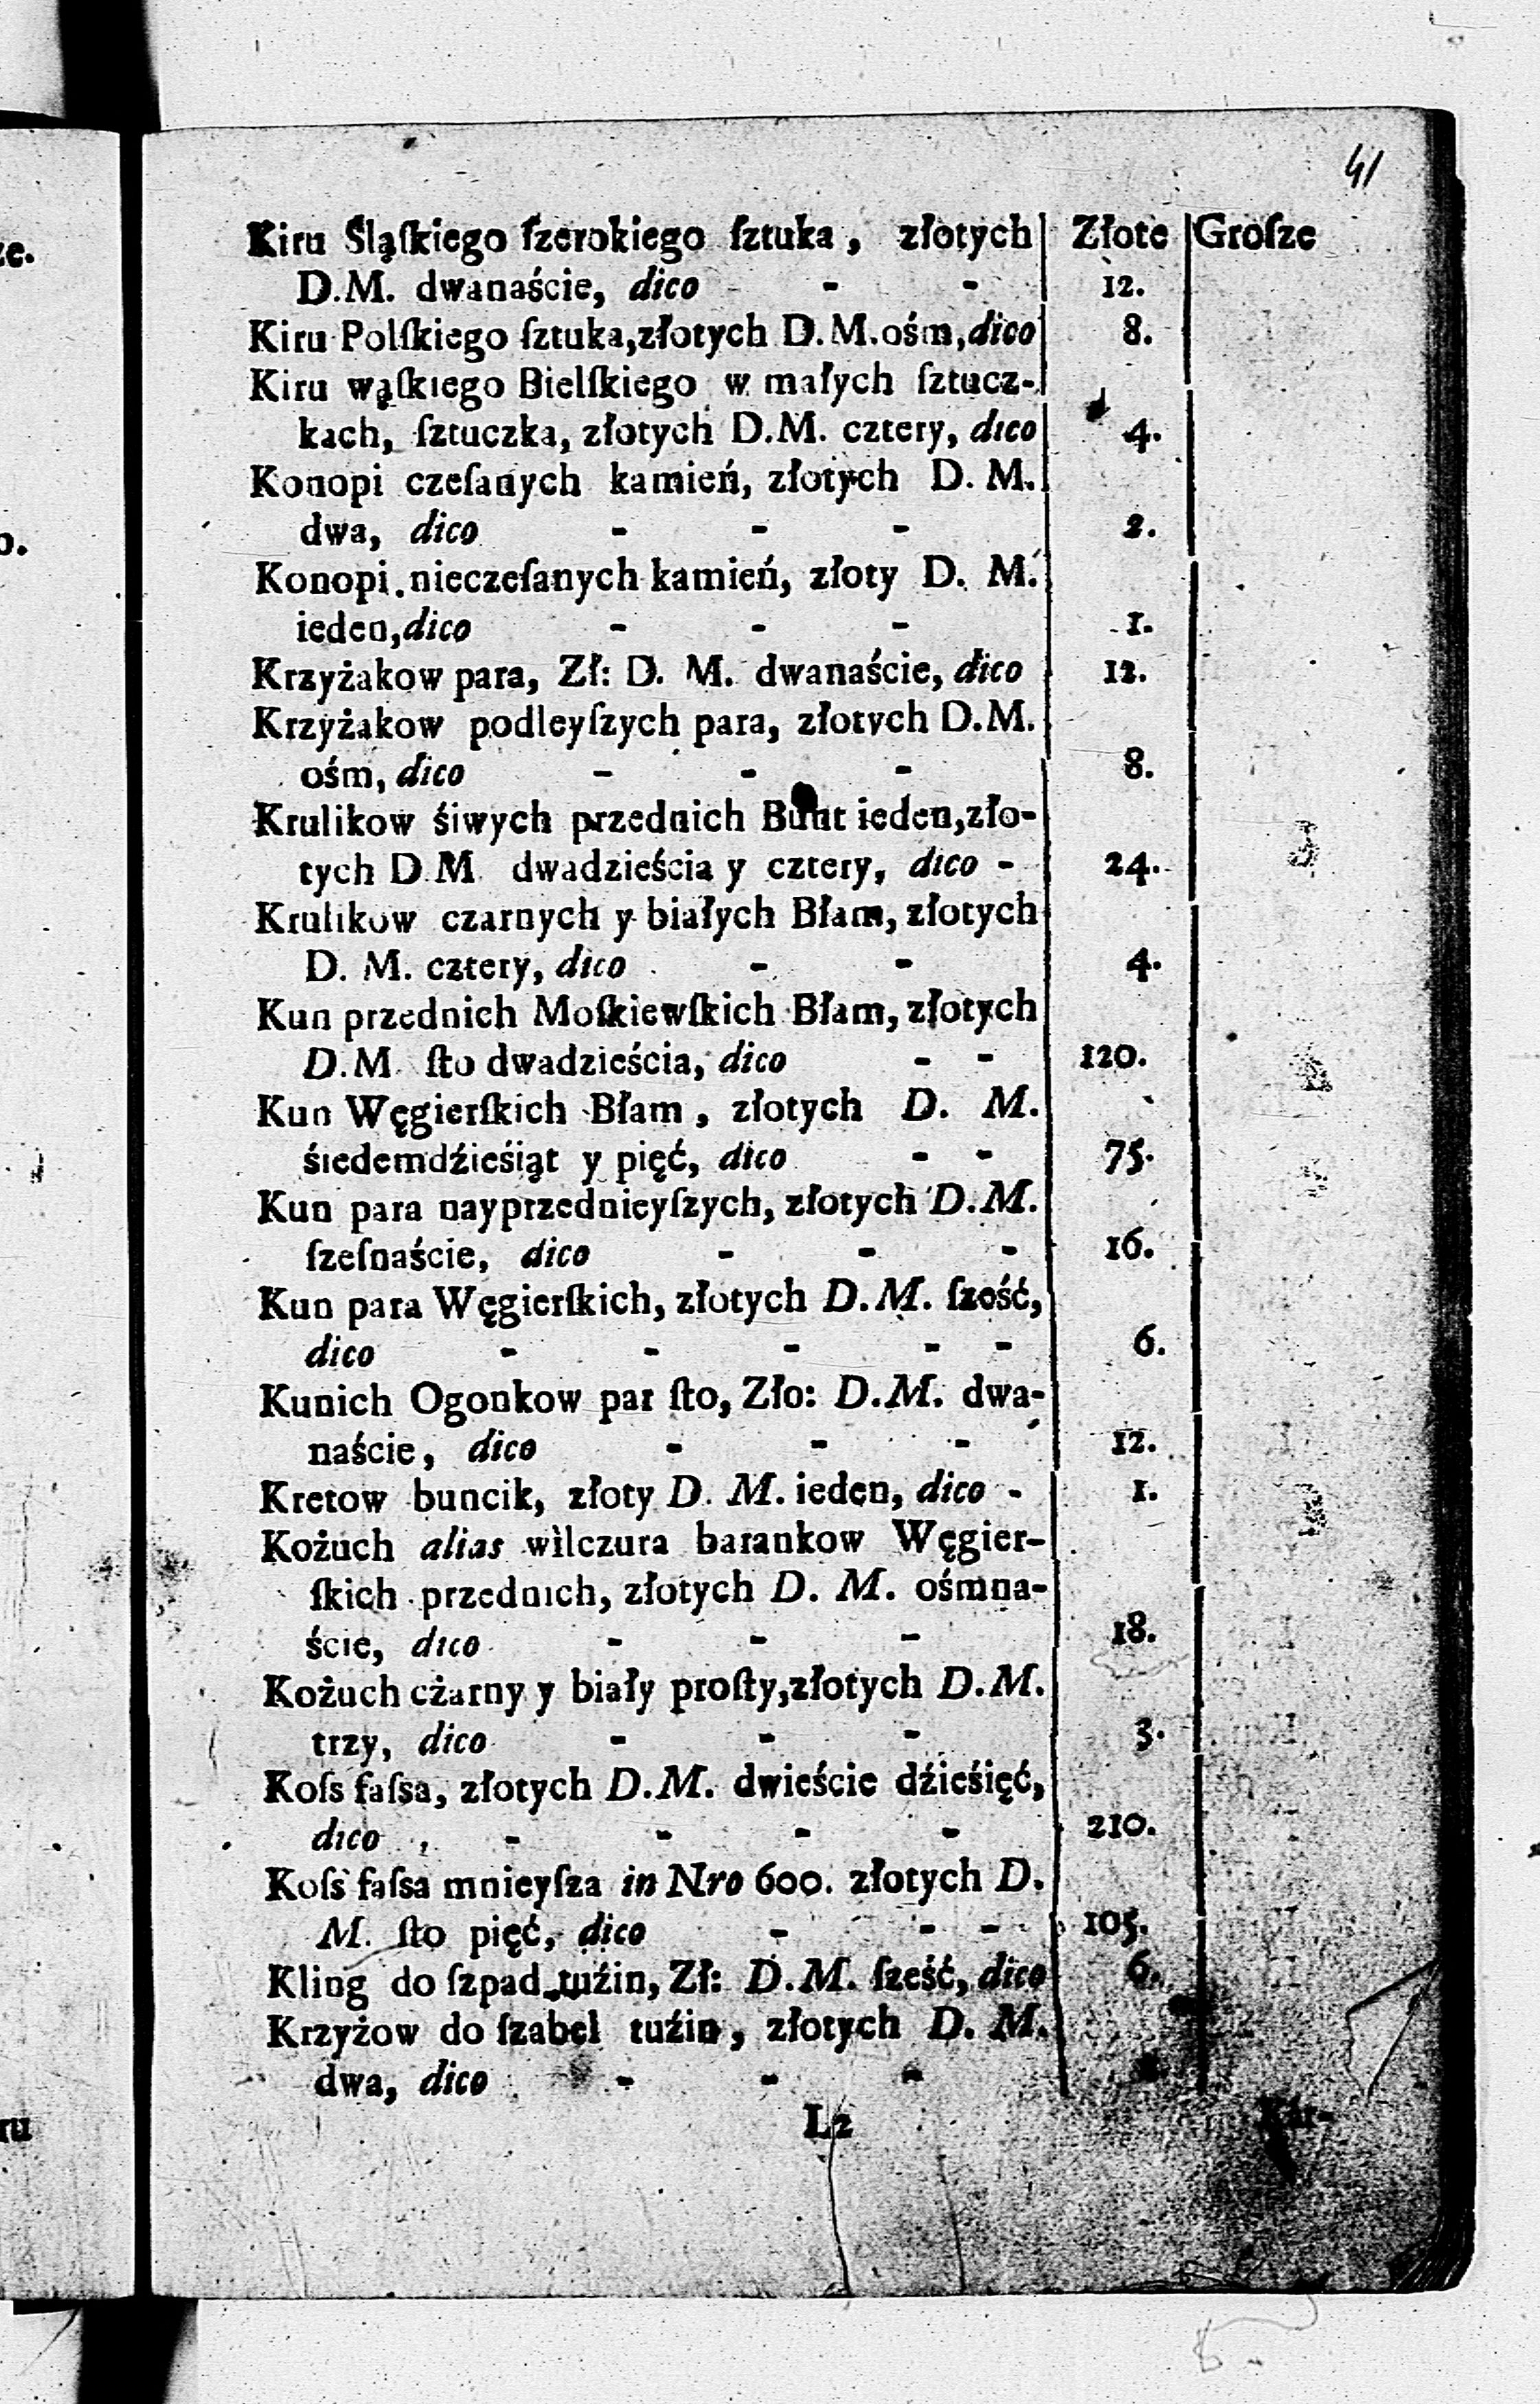 41
Kiru Śląſkiego ſzerokiego ſztuka, złotych Złote Groſze
D.M. dwanaście, dico - - 12.
Kiru Polſkiego ſztuka,złotych D.M.ośm,dico 8.
Kiru wąſkiego Bielſkiego w małych ſztucz-
kach, ſztuczka, złotych D.M. cztery, dico 4.
Konopi czeſanych kamień, złotych D. M.
dwa, dico - - - 2.
Konopi nieczeſanych kamień, złoty D. M.
ieden,dico - - - 1.
Krzyżakow para, Zł: D. M. dwanaście, dico 12.
Krzyżakow podleyſzych para, złotych D.M.
ośm, dico - - - 8.
Krulikow śiwych przednich Bunt ieden,zło-
tych D M dwadzieścia y cztery, dico - 24.
Krulikow czarnych y białych Błam, złotych
D. M. cztery, dico - - 4.
Kun przednich Moſkiewſkich Błam, złotych
D.M. ſto dwadzieścia, dico - - 120.
Kun Węgierſkich Błam, złotych D. M.
śiedemdźieśiąt y pięć, dico - - 75.
Kun para nayprzednieyſzych, złotych D.M.
ſzeſnaście, dico - - - 16.
Kun para Węgierſkich, złotych D.M. ſześć,
dico - - - - - 6.
Kunich Ogonkow par ſto, Zło: D.M. dwa-
naście, dico - - - 12.
Kretow buncik, złoty D. M. ieden, dico - 1.
Kożuch alias wilczura barankow Węgier-
ſkich przednich, złotych D. M. ośmna-
ście, dico - - - 18.
Kożuch cżarny y biały proſty,złotych D.M.
trzy, dico - - - 3.
Koſs faſsa, złotych D.M. dwieście dźieśięć,
dico - - - - 210.
Koſs faſsa mnieyſza in Nro 600. złotych D.
M. ſto pięć, dico - - - 105.
Kling do ſzpad tuźin, Zł: D.M. ſześć, dico 6.
Krzyżow do ſzabel tuźin, złotych D. M.
dwa, dico - - -
L2
ru